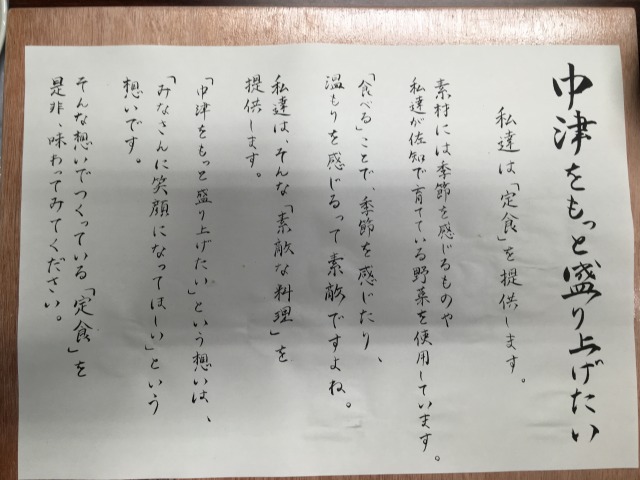 中津をもっと盛り上げたい
私達は「定食」を提供します。
素材には季節を感じるものや
私達が佐知で育てている野菜を使用しています。
「食べる」ことで、季節を感じたり、
温もりを感じるって素敵ですよね。
私達は、そんな「素敵な料理」を
提供します。
「中津をもっと盛り上げたい」という想いは、
「みなさんに笑顔になってほしい」という
想いです。
そんな想いでつくっている「定食」を
是非、味わってみてください。